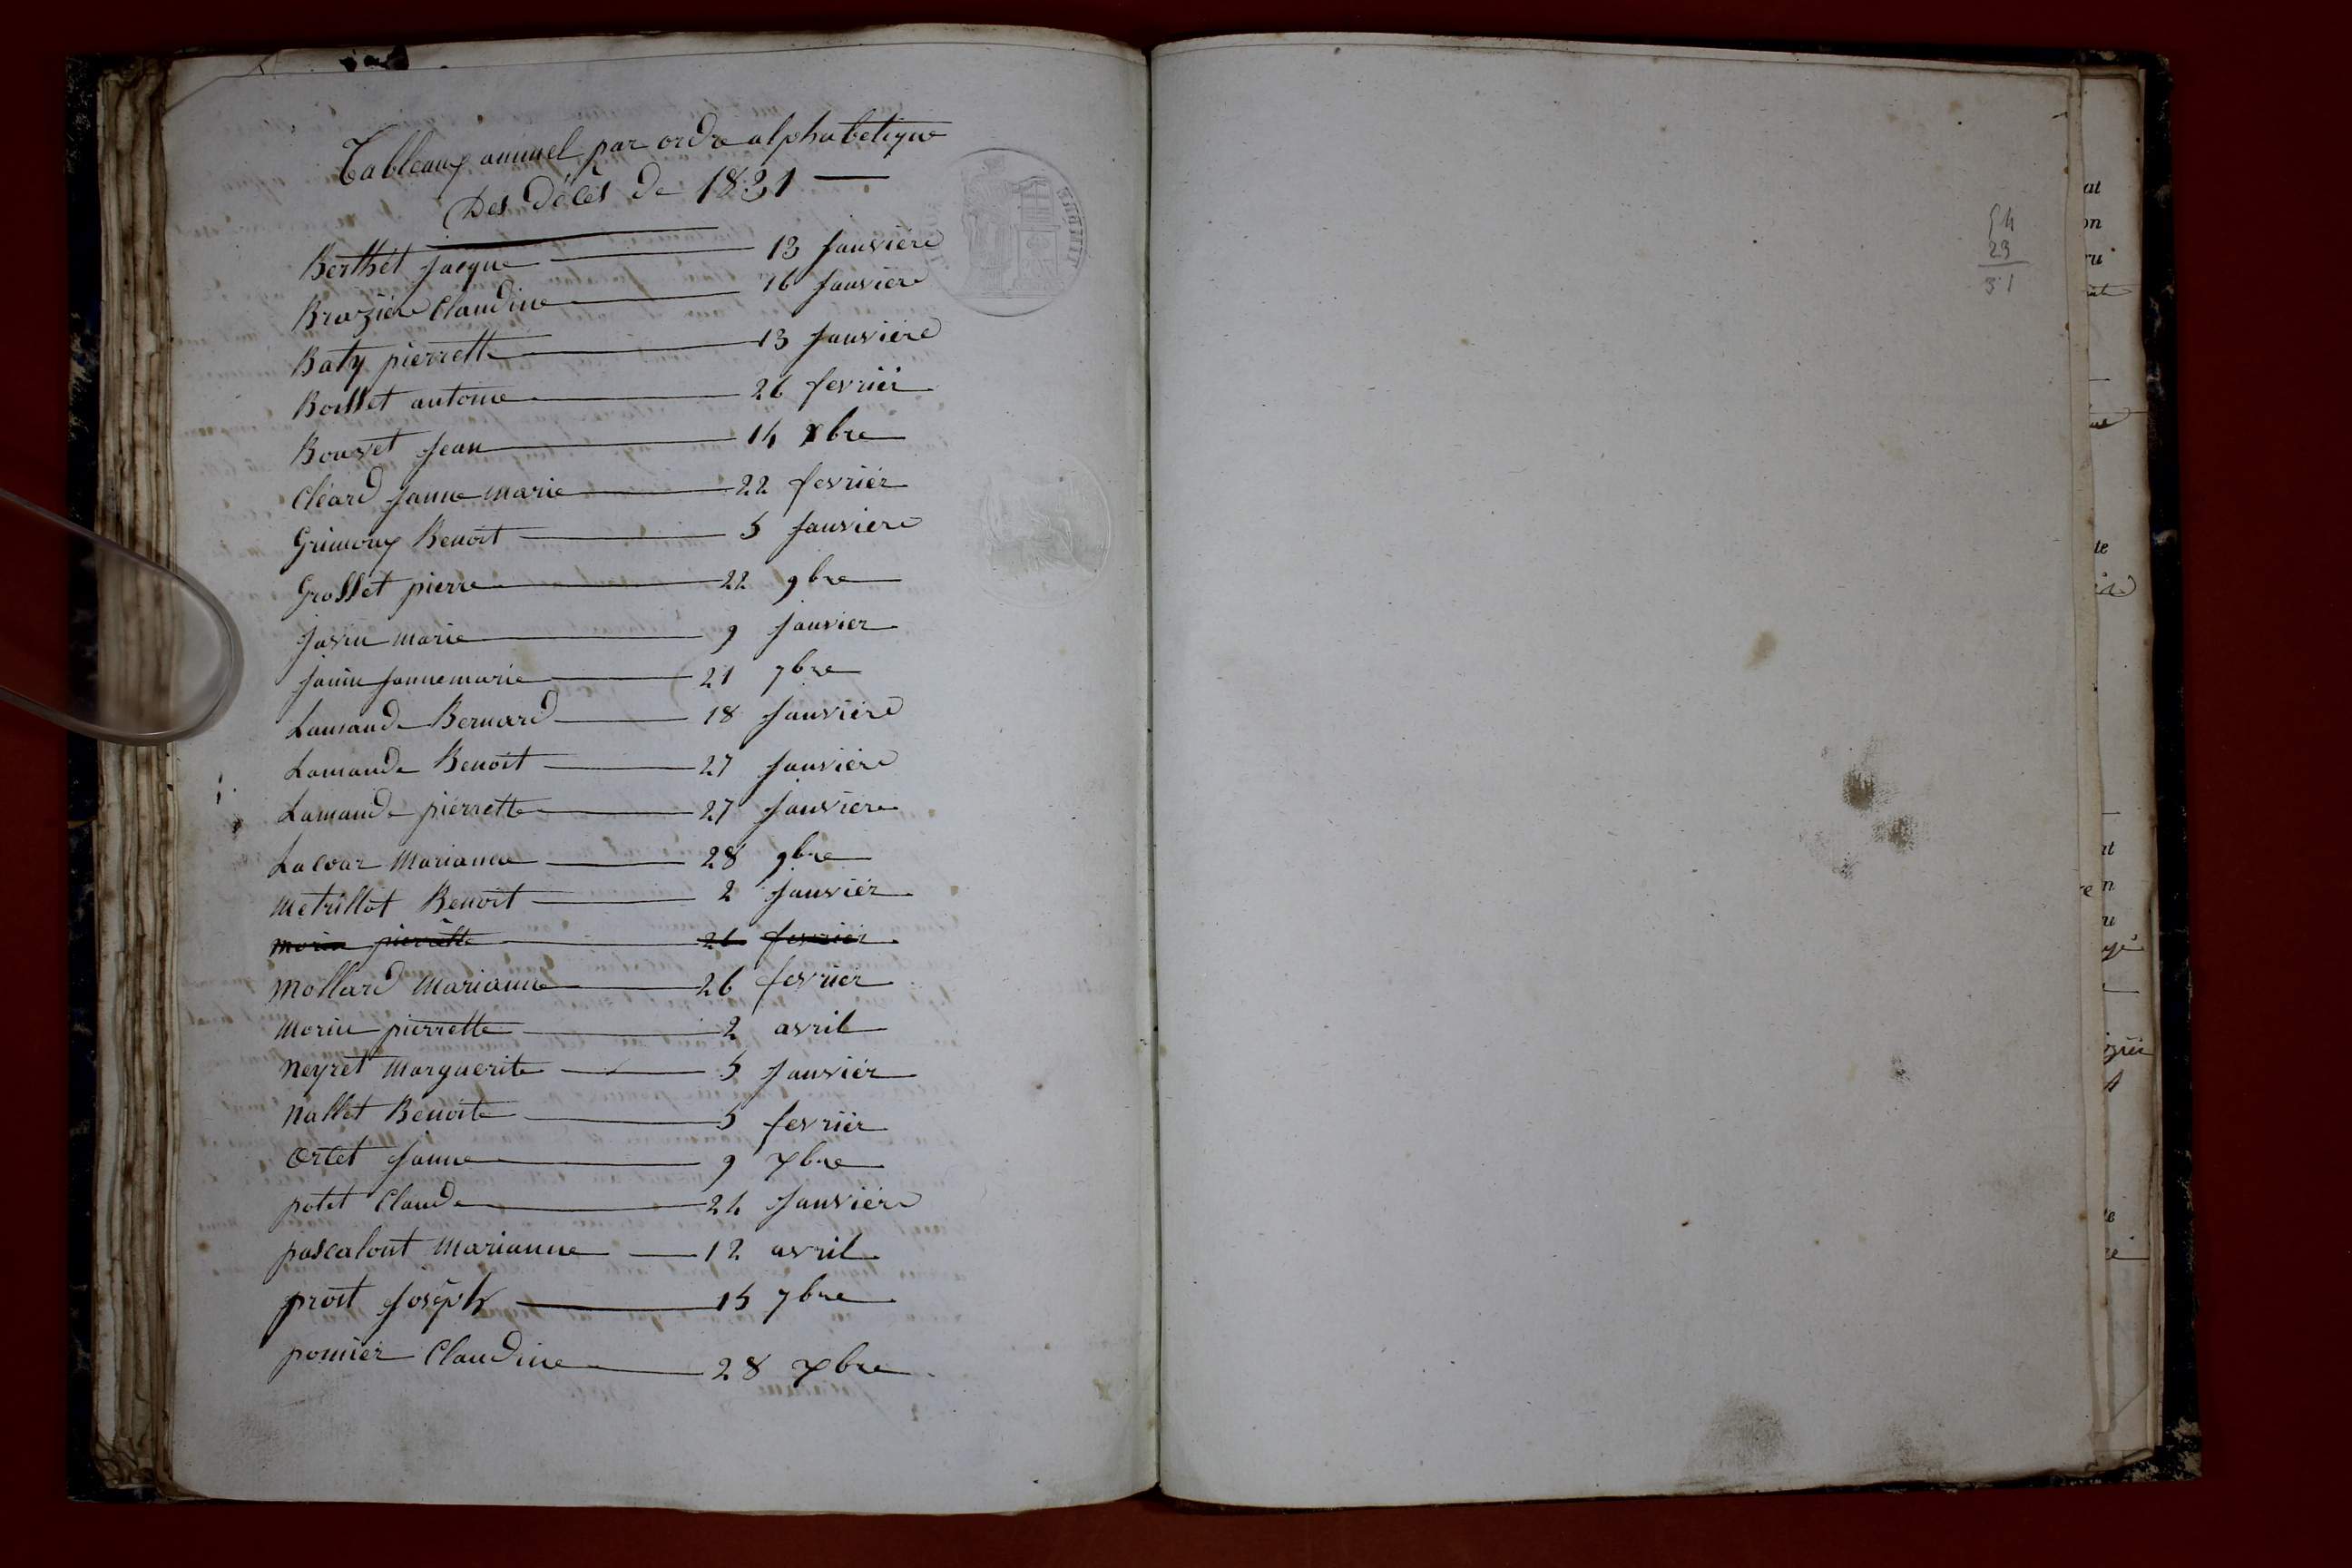 Tableaux annuel par ordre alphabetique
Des décés de 1831
Berthet jacque 13 janvière
Brazière Claudine 16 janvière
Baty pierrette 13 janvière
Bosset antoine 26 fevrier
Bouvet jean 14 xbre
Cléard janne marie 22 fevrier
Grimoux Benoit 5 janvière
Grosset pierre 22 9bre
javin marie 9 janvier
janin jannemarie 21 7bre
Lamande Bernard 18 janvière
Lamande Benoit 27 janvière
Lamande pierrette 27 janviere
Lacour Marianne 28 9bre
Metrillot Benoit 2 janvier
morin pierrette 26 fevrier
Mollard Marianne 26 fevrier
Morin pierrette 2 avril
neyret Marguerite 5 janvier
nallet Benoite 5 fevrier
ortet janne 9 xbre
potet Claude 24 janvière
pascalout Marianne 12 avril
prost joseph 15 7bre
pomier Claudine 28 xbre
54
23
31